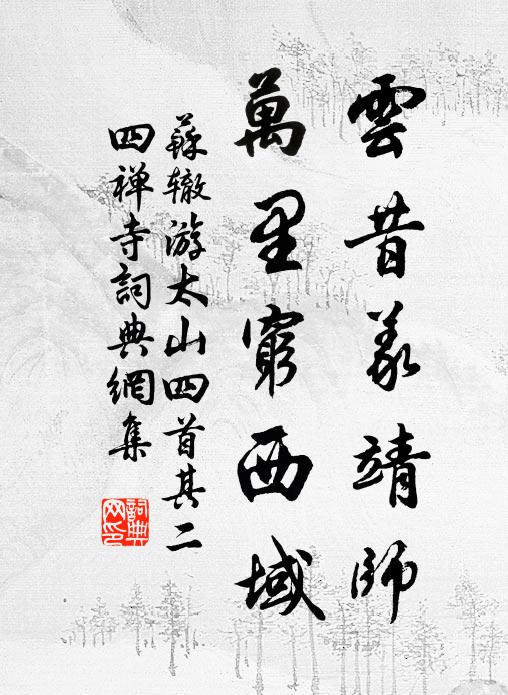 雲昔義靖師
萬里窮西域
蘇辙游太山四首其二
四禅寺詞典網集
詞典
网印